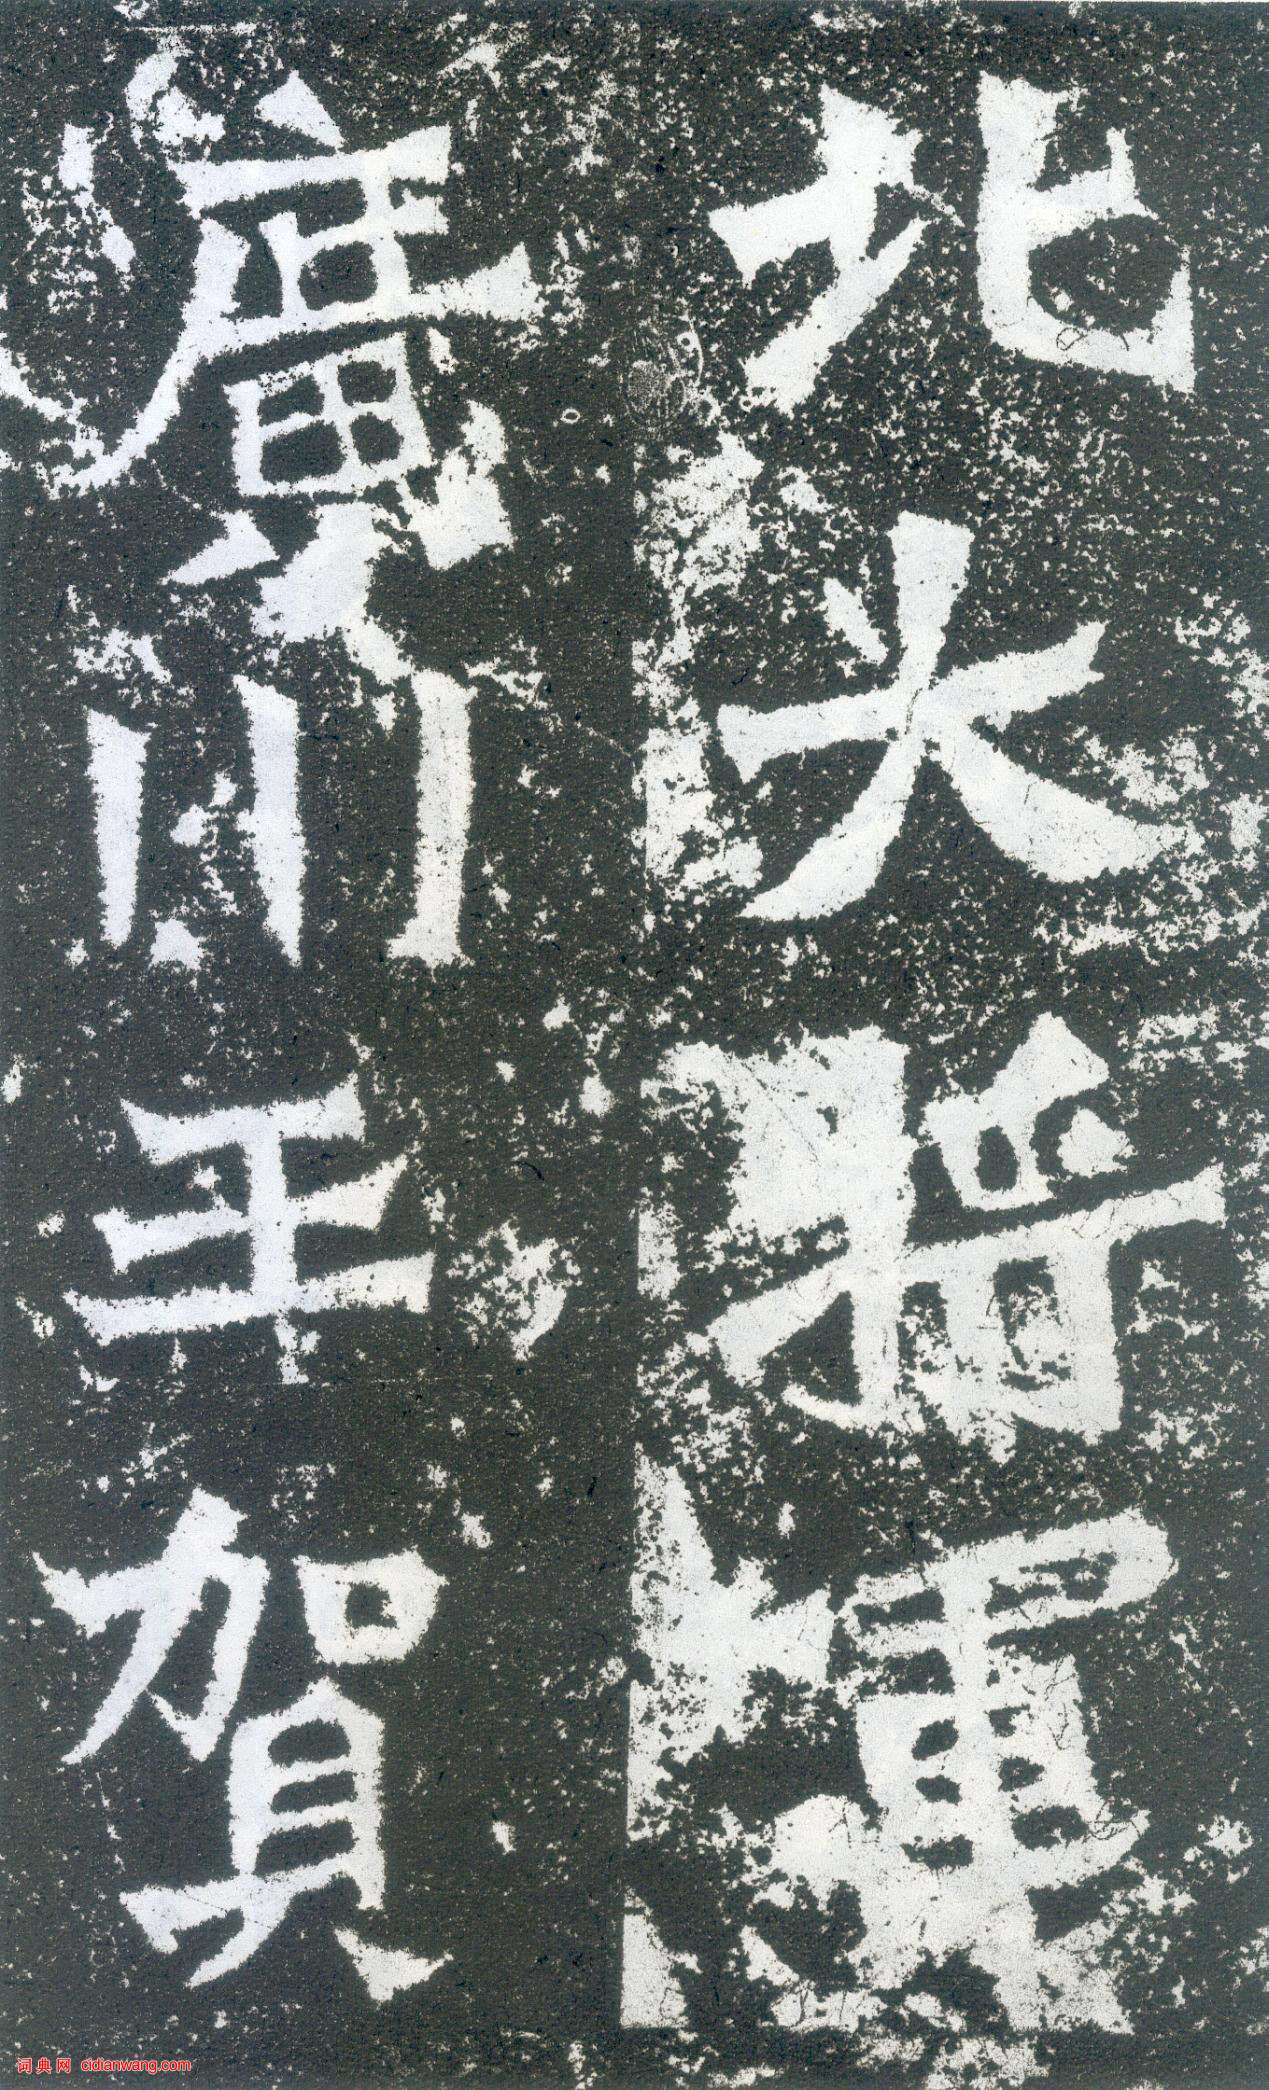 北大將軍
廣川王賀
词典网 cidianwang.com